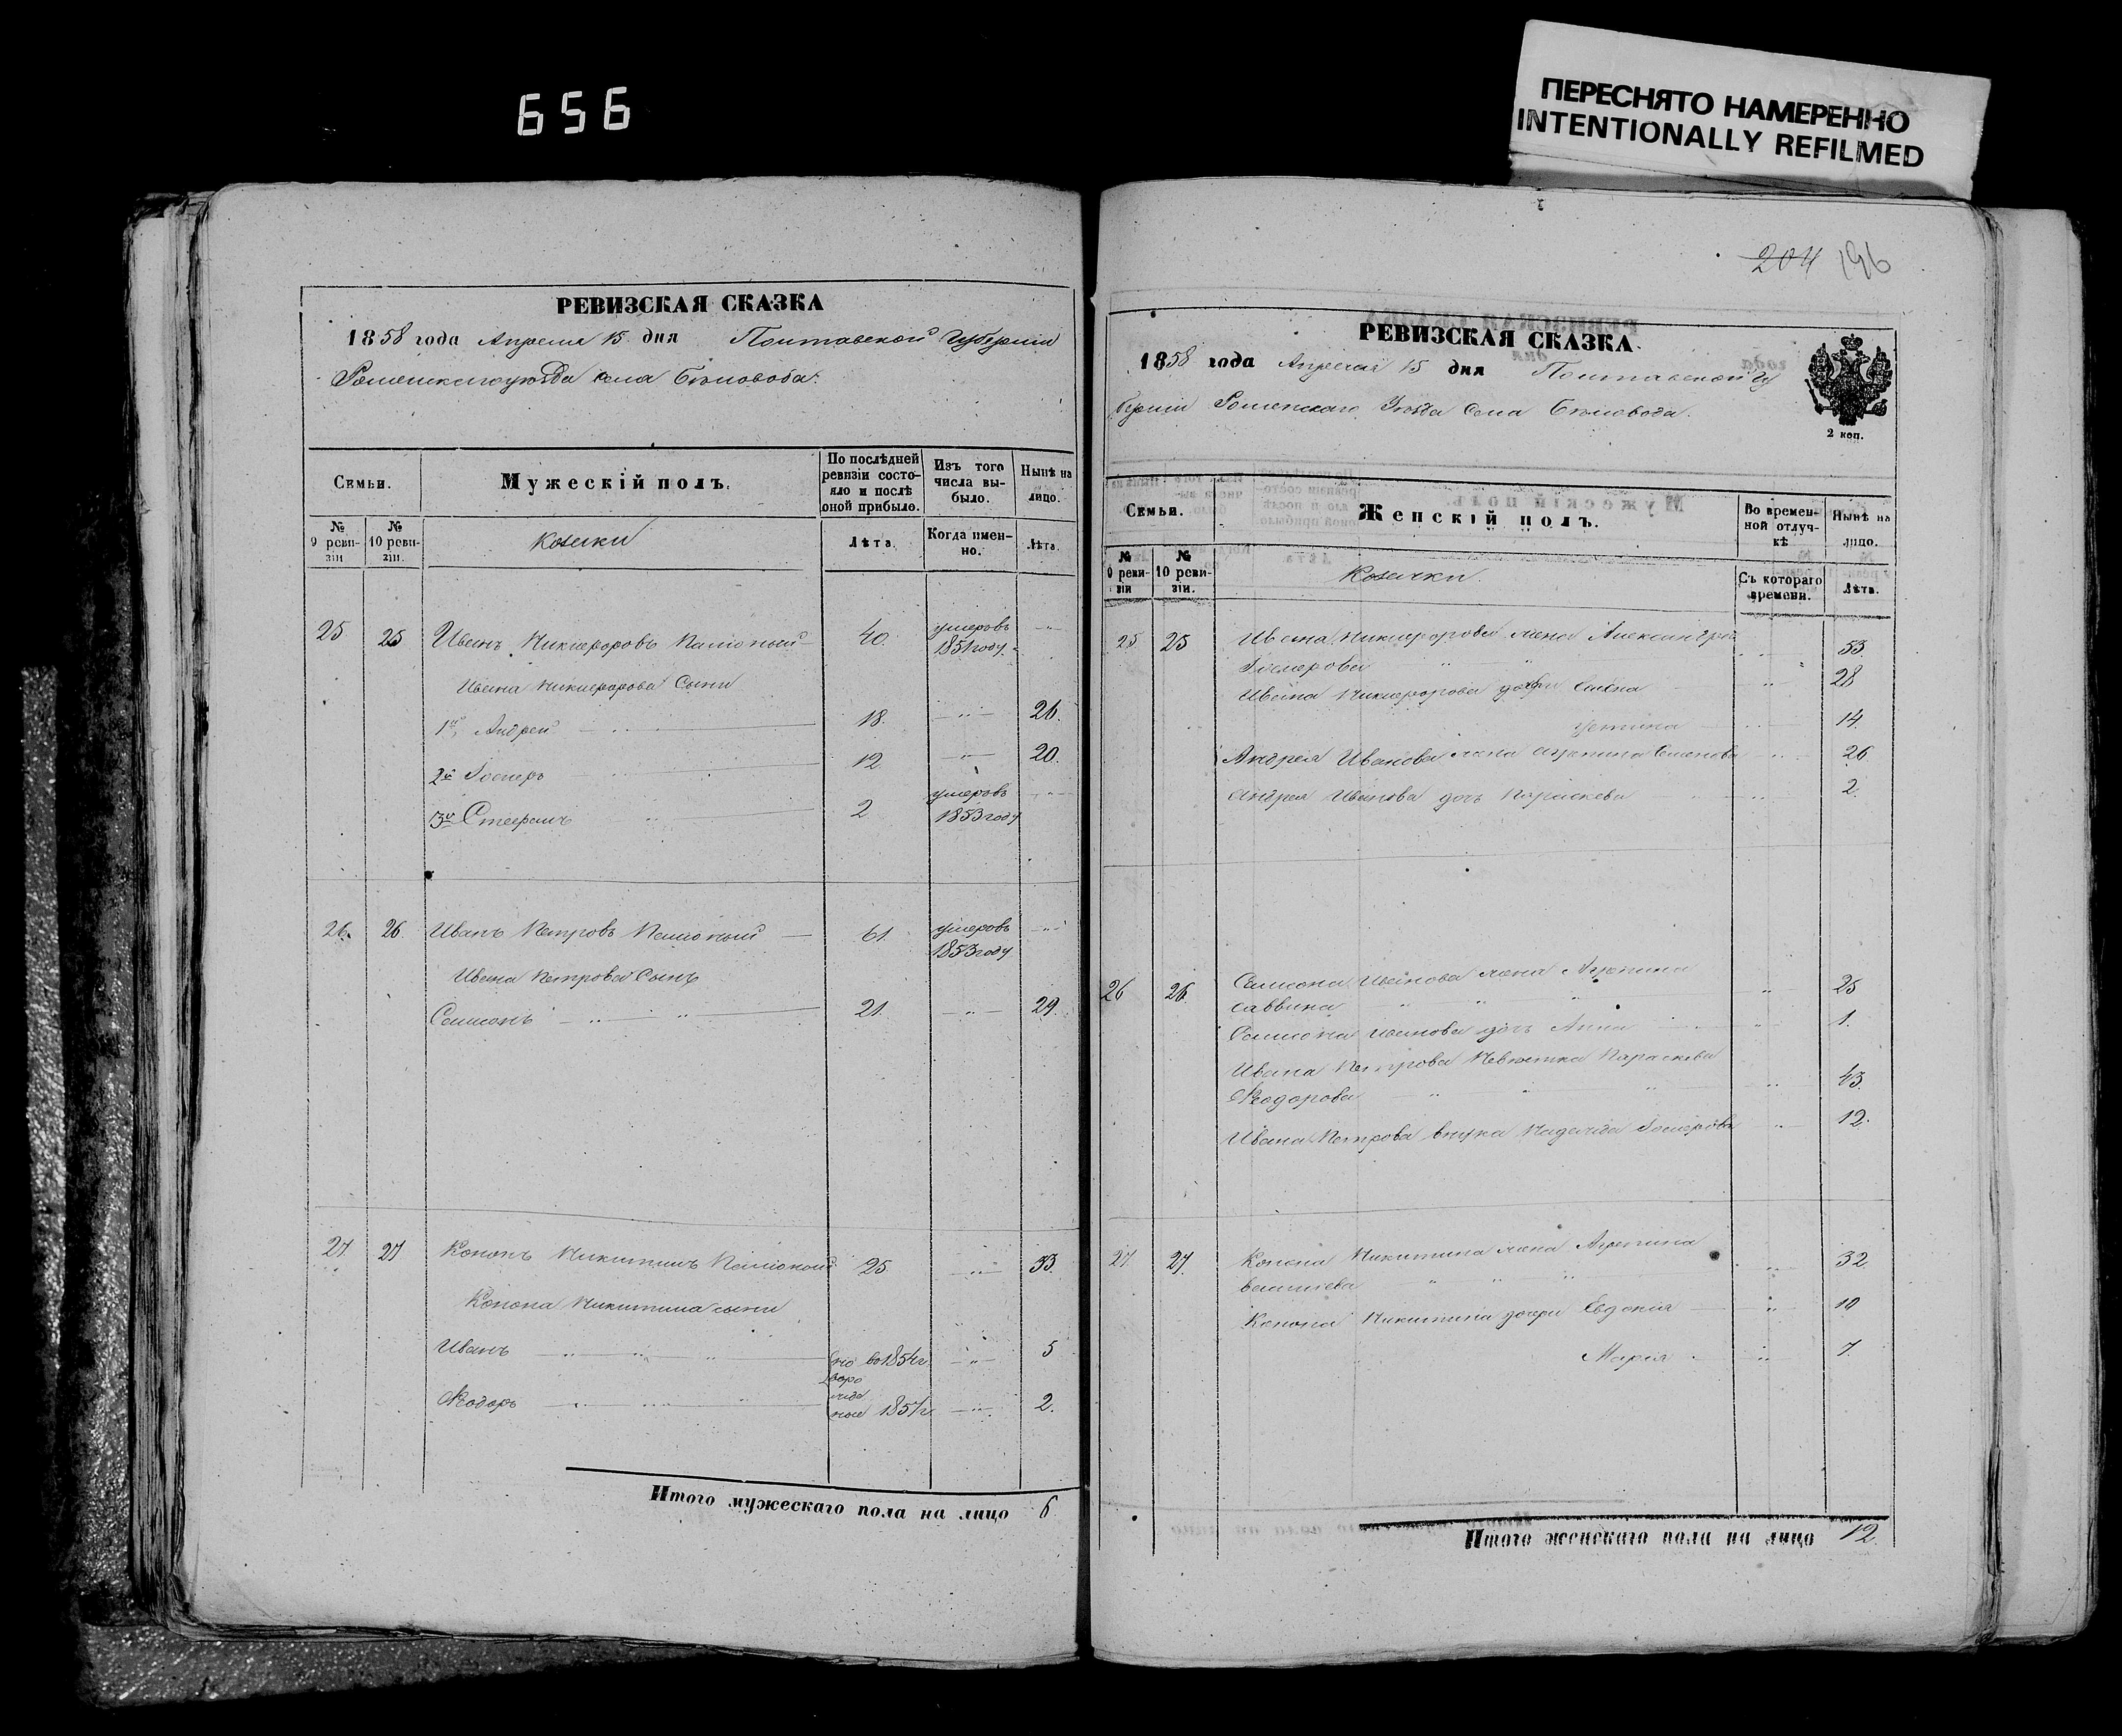 656
ПЕРЕСНЯТО НАМЕРЕННО
INTENTIONALLY REFILMED
РЕВИЗСКАЯ СКАЗКА
1858 года Апреля 15 дня Полтавской Губерніи
Роменского уѣзда села Бѣловода.
Семьи.
Мужескій полъ.
По послѣдней ревизіи состояло и послѣ оной прибыло.
Изъ того числа выбыло.
Нынѣ на лицо.
№ 9 ревизіи
№ 10 ревизіи.
Козаки
Лѣта.
Когда именно.
Лѣта.
25 25 Иванъ Никифоровъ 40. умеръ въ 1851 году.
Ивана Никифорова Сыны
1й Андрей 18. 26.
2й 12 20.
3й Стефанъ 2 умеръ въ 1853 году
26. 26 Иванъ Петровъ 61. умеръ въ 1853 году
Ивана Петрова Сынъ
Самсонъ 21. 29.
27. 27 Кононъ Никитинъ 25 33.
Конона Никитина сыны
Иванъ 5
Ѳеодоръ 2.
Итого мужескаго пола на лицо 6
204 196
РЕВИЗСКАЯ СКАЗКА
1858 года Апреля 15 дня Полтавской Гу
берніи Роменскаго Уѣзда Села Бѣловода.
2 коп.
Семьи.
Женскій полъ.
Во временной отлучкѣ
Нынѣ на лицо.
№ 9 ревизіи
№ 10 ревизіи.
Козачки.
Съ котораго времени.
Лѣта.
25 25 Ивана Никифорова жена Александра
53.
Ивана Никифорова дочери 28
14.
Андрея Иванова жена 26
Андрея Иванова дочь Параскева 2.
26 26 Самсона Иванова жена Агрепина
Саввина 25
Самсона Иванова дочь Анна 1.
Ивана Петрова Невѣстка Параскева
Ѳеодорова 43.
Ивана Петрова внука Надежда 12.
27. 27. Конона Никитина жена Агрепина
32
Конона Никитина дочери Евдокія 10
Марія 7.
Итого женскаго пола на лицо 12.